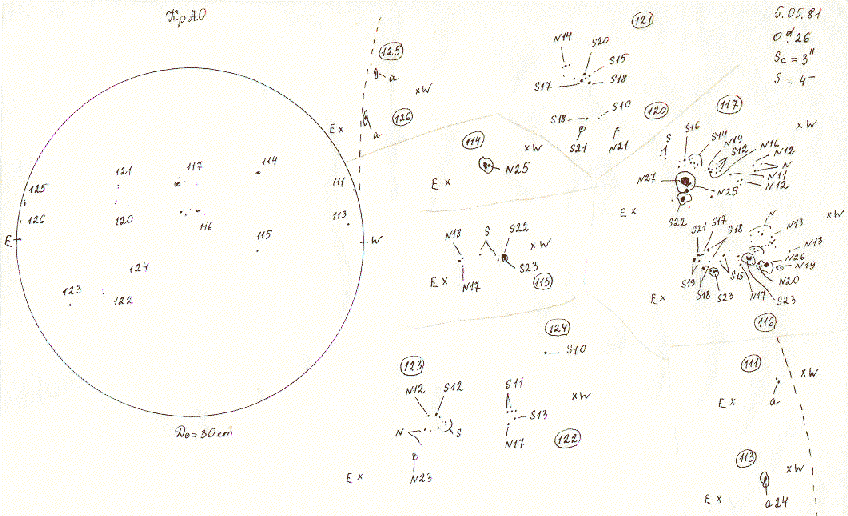 КрАО
5.05.81
0ᵈ.26
Sc = 3"
S = 4"
121
N14
S20
S15
S17
S18
125
a
x W
126
E x
a
S18
S10
S21
N21
120
117
S
S16
S14
N19
S12
N16
N12
N
N11
N12
N25
N27
S22
E x
x W
114
x W
N25
E x
121
117
114
125
111
126
120
116
113
E
W
115
124
123
122
Do = 30 cm
N18
S
S22
x W
S23
E x
N17
115
S21
S17
S18
N
N13
x W
N13
N26
N19
N20
S19
S18
S23
S15
N17
S23
E x
116
124
S10
123
N12
S12
N
S
N23
E x
S11
S13
N17
x W
122
111
x W
E x
a
113
x W
E x
a24